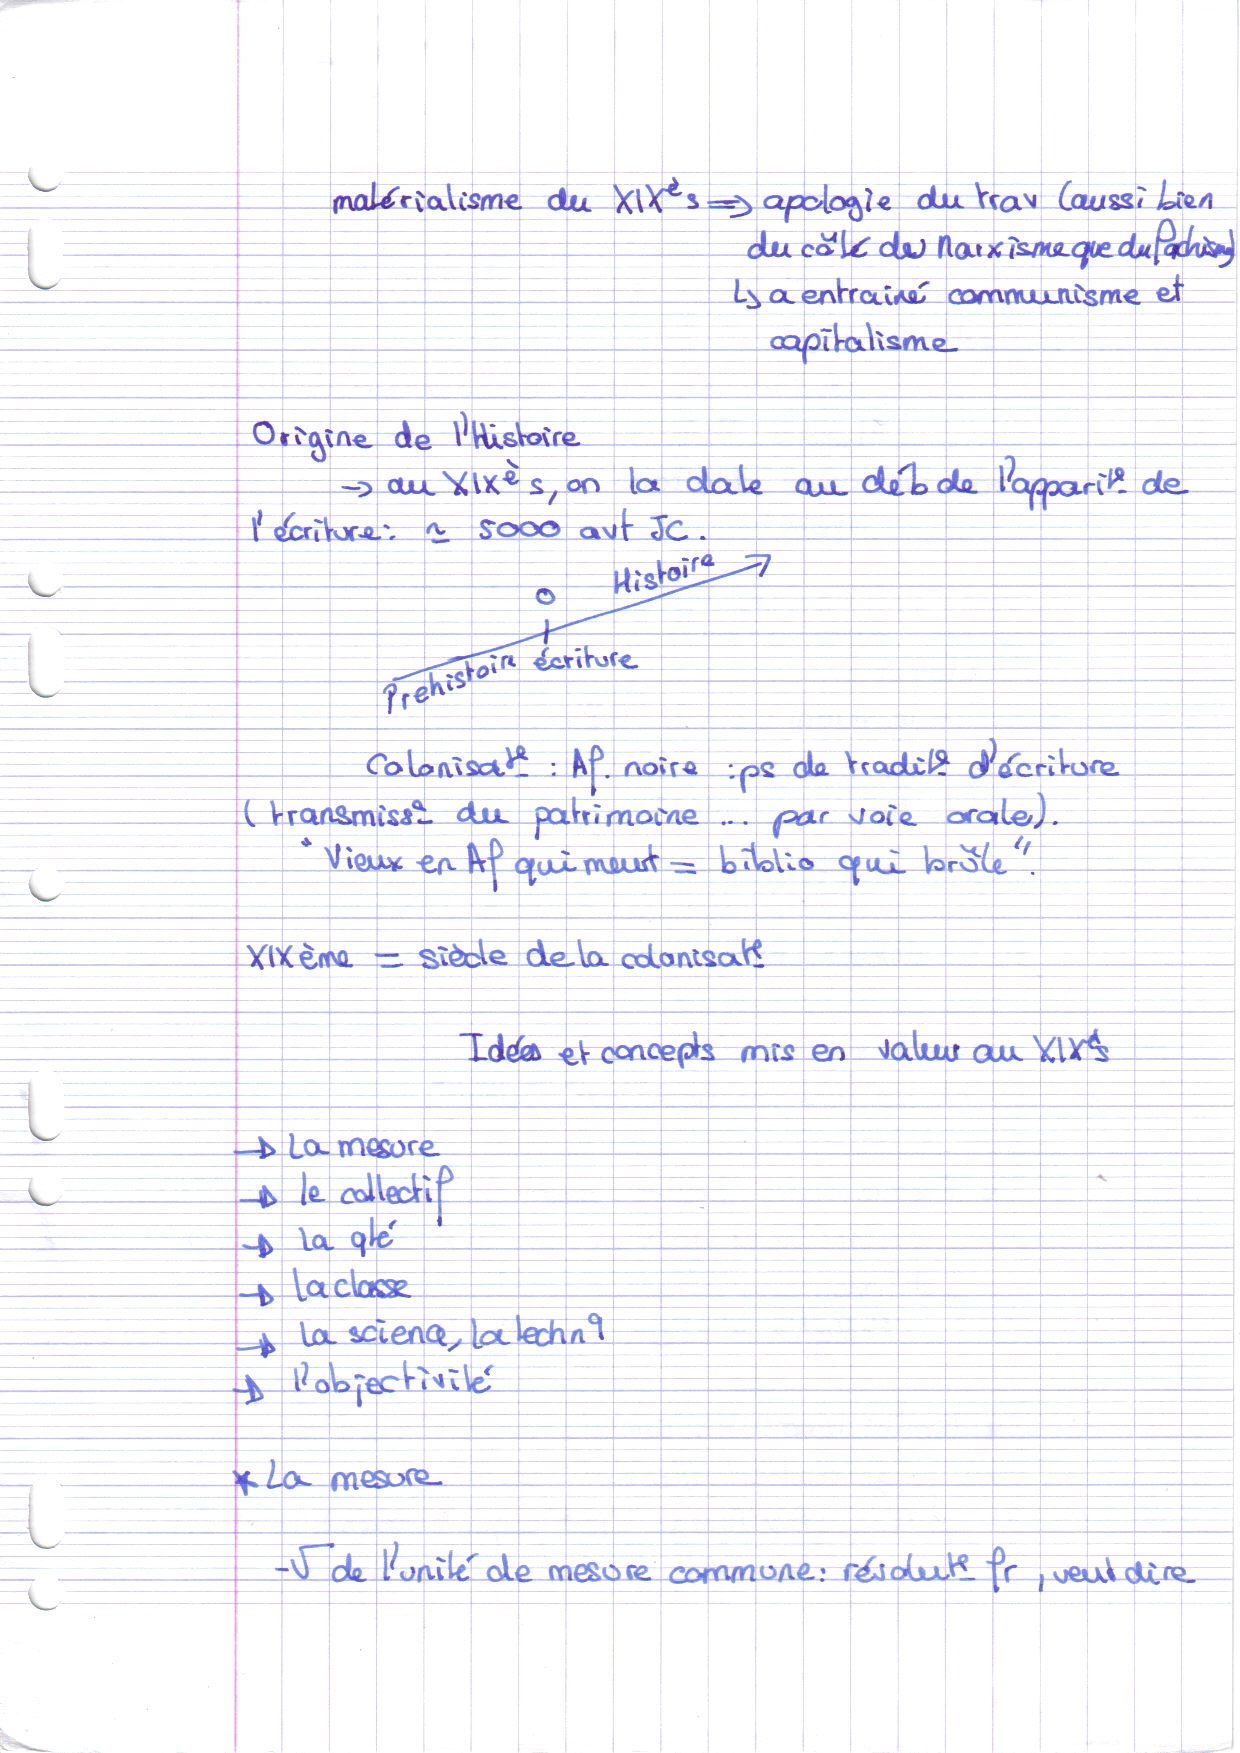 matérialisme du XIXès => apologie du trav (aussi bien
du côté du Marxisme que du fachisme)
↳ a entrainé communisme et
capitalisme
Origine de l'Histoire
→ au XIXès, on la date au déb de l'apparit° de
l'écriture : ≃ 5000 avt JC.
Histoire
0
Prehistoire écriture
Colonisat° : Af. noire : ps de tradit° d'écriture
(transmiss° du patrimoine ... par voie orale).
"Vieux en Af qui meurt = biblio qui brûle".
XIXème = siècle de la colonisat°
Idées et concepts mis en valeur au XIXès
→ La mesure
→ le collectif
→ la qté
→ la classe
→ la science, la techn q
→ l'objectivité
* La mesure
- √ de l'unité de mesure commune : résolut° fr, veut dire